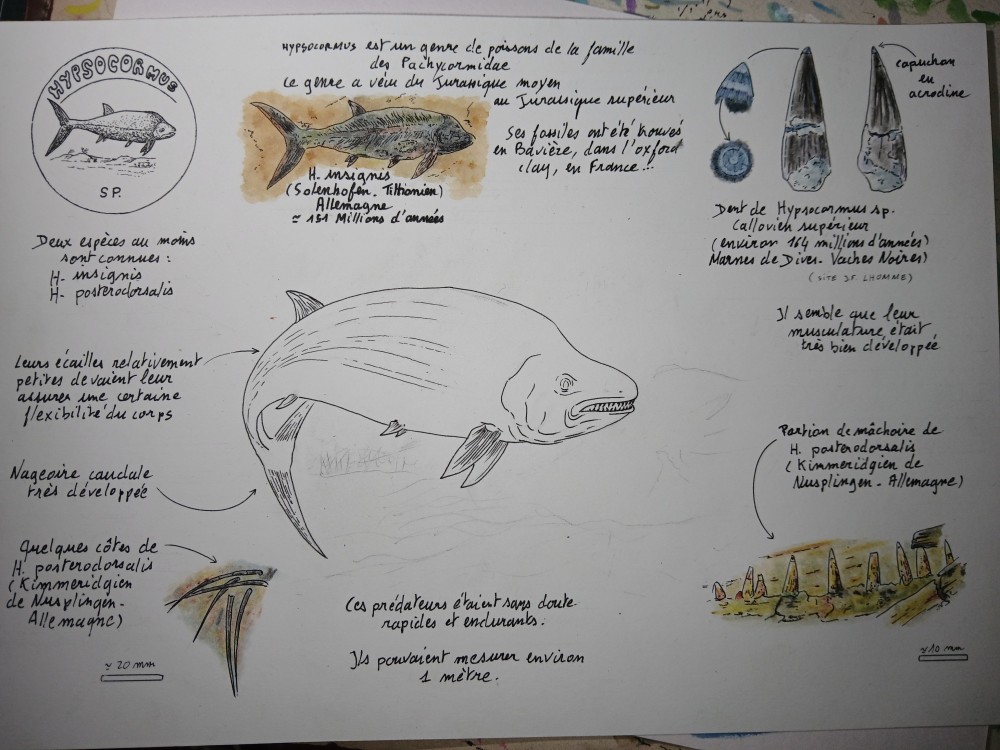 HYPSOCORMUS
SP.
HYPSOCORMUS est un genre de poissons de la famille
des Pachycormidae
Le genre a vécu du Jurassique moyen
au Jurassique supérieur
Ses fossiles ont été trouvés
en Bavière, dans l'oxford
clay, en France...
H. insignis
(Solenhofen - Tithonien)
Allemagne
≃ 151 Millions d'années
capuchon
en
acrodine
Dent de Hypsocormus sp.
Callovien supérieur
(environ 164 millions d'années)
Marnes de Dives - Vaches Noires)
(SITE JF. LHOMME)
Deux espèces au moins
sont connues :
H. insignis
H. posterodorsalis
Il semble que leur
musculature était
très bien développée
Leurs écailles relativement
petites devaient leur
assurer une certaine
flexibilité du corps
Portion de mâchoire de
H. posterodorsalis
(Kimmeridgien de
Nusplingen - Allemagne)
Nageoire caudale
très développée
Quelques côtes de
H. posterodorsalis
(Kimmeridgien
de Nusplingen -
Allemagne)
≃ 20 mm
Ces prédateurs étaient sans doute
rapides et endurants.
Ils pouvaient mesurer environ
1 mètre.
≃ 10 mm